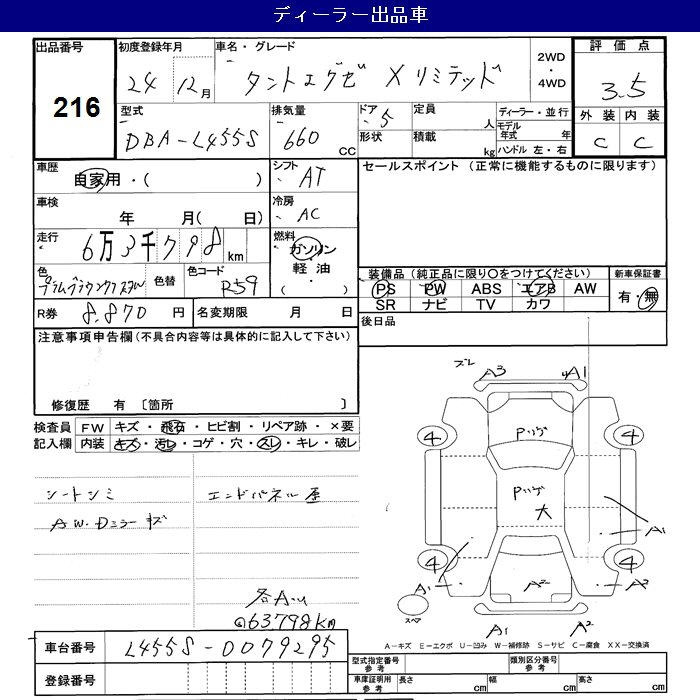 ディーラー出品車
出品番号
216
初度登録年月
24 12月
車名・グレード
タントエグゼ Xリミテッド
2WD
・
4WD
評価点
3.5
外装 内装
C C
型式
DBA-L455S
排気量
660 cc
ドア 5
形状
定員 人
積載 kg
ディーラー・並行
モデル年式 年
ハンドル 左・右
車歴
自家用・( )
シフト AT
セールスポイント (正常に機能するものに限ります)
車検
年 月( 日)
冷房 AC
走行
6万3千798km
燃料
ガソリン
軽油
( ・ )
色
プラムブラウンクリスタルM
色替
色コード
R59
装備品 (純正品に限り〇をつけてください)
PS PW ABS エアB AW
SR ナビ TV カワ
新車保証書
有・無
R券 8.870 円
名変期限 月 日
後日品
注意事項申告欄 (不具合内容等は具体的に記入して下さい)
修復歴 有 〔箇所 〕
検査員記入欄
FW キズ・飛石・ヒビ割・リペア跡・×要
内装 キズ・汚レ・コゲ・穴・スレ・キレ・破レ
シートシミ
A.W.Dミラーキズ
エンドパネル歪
各Aい
63798km
ブレ A3 A1
4 4
Pツゲ
Pツゲ
大
A1
4 4
A1 A2 A2
スペア
A1 A2
A-キズ E-エクボ U-凹み W-補修跡 S-サビ C-腐食 XX-交換済
車台番号 L455S-0079295
登録番号
型式指定番号 参考
類別区分番号 参考
車庫証明用 参考
長さ cm
幅 cm
高さ cm